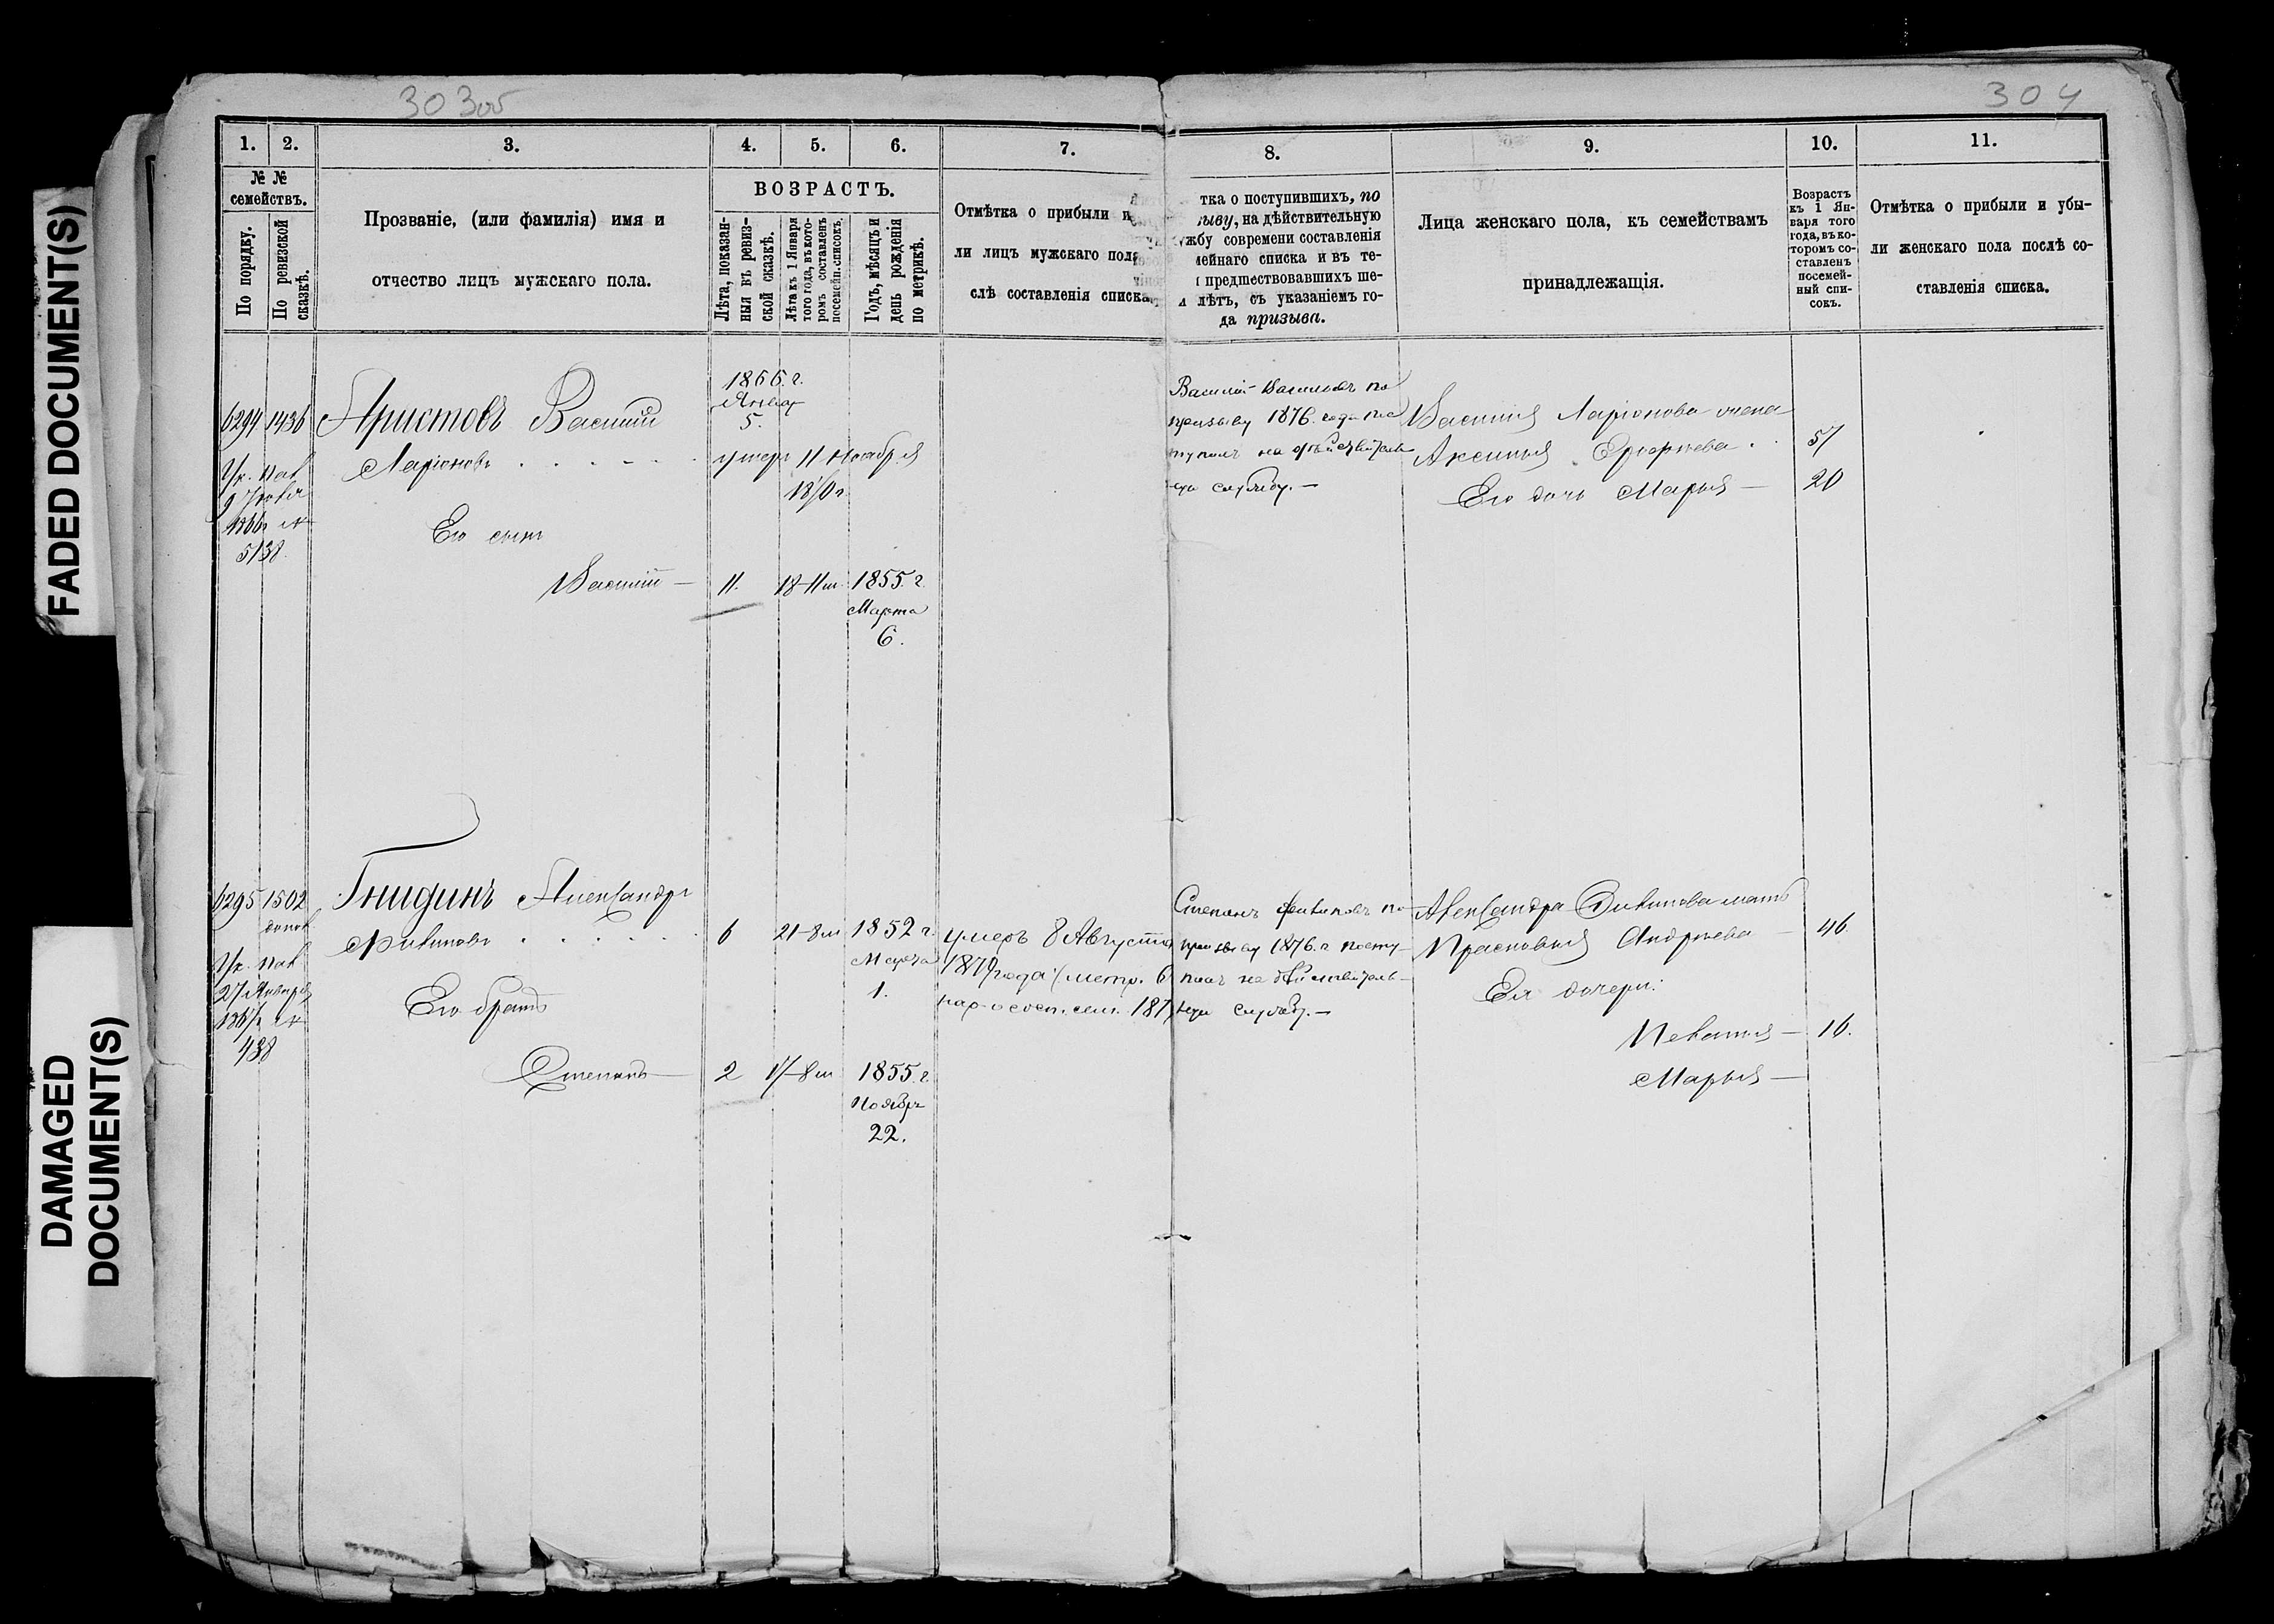 FADED DOCUMENT(S)
DAMAGED
DOCUMENT(S)
303об
304
1. 2. 3. 4. 5. 6. 7. 8. 9. 10. 11.
№ №
семействъ.
По порядку.
По ревизской
сказкѣ.
Прозваніе, (или фамилія) имя и
отчество лицъ мужскаго пола.
ВОЗРАСТЪ.
Лѣта, показан-
ныя въ ревиз-
ской сказкѣ.
Лѣта къ 1 Января
того года, въ кото-
ромъ составленъ
посемейн. списокъ.
Годъ, мѣсяцъ и
день рожденія
по метрикѣ.
Отмѣтка о прибыли и
ли лицъ мужскаго пола
слѣ составленія списка.
тка о поступившихъ, по
зыву, на дѣйствительную
жбу современи составленія
мейнаго списка и въ те-
предшествовавшихъ ше-
лѣтъ, съ указаніемъ го-
да призыва.
Лица женскаго пола, къ семействамъ
принадлежащія.
Возрастъ
къ 1 Ян-
варя того
года, въ ко-
торомъ со-
ставленъ
посемей-
ный спи-
сокъ.
Отмѣтка о прибыли и убы-
ли женскаго пола послѣ со-
ставленія списка.
6294 1436 Аристовъ Василій
Ларіоновъ
1866 г.
Январ
5.
умеръ 11 Ноября
1870г
5138
Его сынъ
Василій — 11. 18-11м 1855. г.
Марта
6.
Василій Васильевъ по
призыву 1876. года пос
тупилъ на дѣйствитель
ную службу. —
Василія Ларіонова жена
Аксинья Егорьева 57
Его дочь Марья — 20
6295 1502 Гнидинъ Александръ
Филиповъ 6 21-8м 1852 г.
Марта
1.
27 Января
438
умеръ 8 Августа
Его братъ
Степанъ — 2 17-8м 1855. г.
Ноябр
22.
Степанъ Филиповъ по
призыву 1876. г. посту-
пилъ на дѣйствитель-
ную службу. —
Александра Филипова мать
Прасковья Андреева — 46.
Ея дочери:
Пелагея — 16.
Марья —